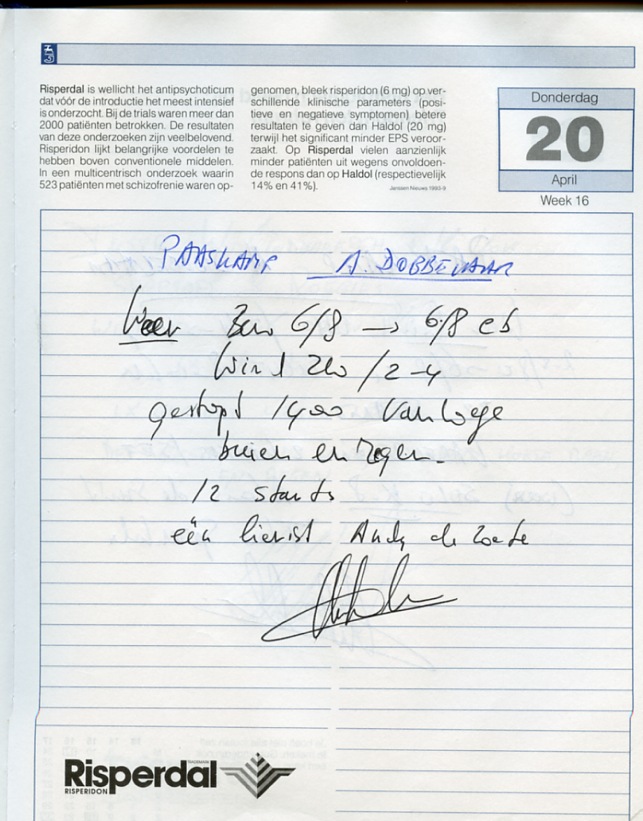 Risperdal is wellicht het antipsychoticum
dat vóór de introductie het meest intensief
is onderzocht. Bij de trials waren meer dan
2000 patiënten betrokken. De resultaten
van deze onderzoeken zijn veelbelovend.
Risperidon lijkt belangrijke voordelen te
hebben boven conventionele middelen.
In een multicentrisch onderzoek waarin
523 patiënten met schizofrenie waren op-
genomen, bleek risperidon (6 mg) op ver-
schillende klinische parameters (posi-
tieve en negatieve symptomen) betere
resultaten te geven dan Haldol (20 mg)
terwijl het significant minder EPS veroor-
zaakt. Op Risperdal vielen aanzienlijk
minder patiënten uit wegens onvoldoen-
de respons dan op Haldol (respectievelijk
14% en 41%).
Janssen Nieuws 1993-9
Donderdag
20
April
Week 16
PAASKAMP A. DOBBELAAR
Weer 6/8 → 6/8 cb
Wind ZW /2-4
gestopt 1400 Vanwege
buien en regen.
12 starts
eën lierist Andy de Zoete
Risperdal
RISPERIDON